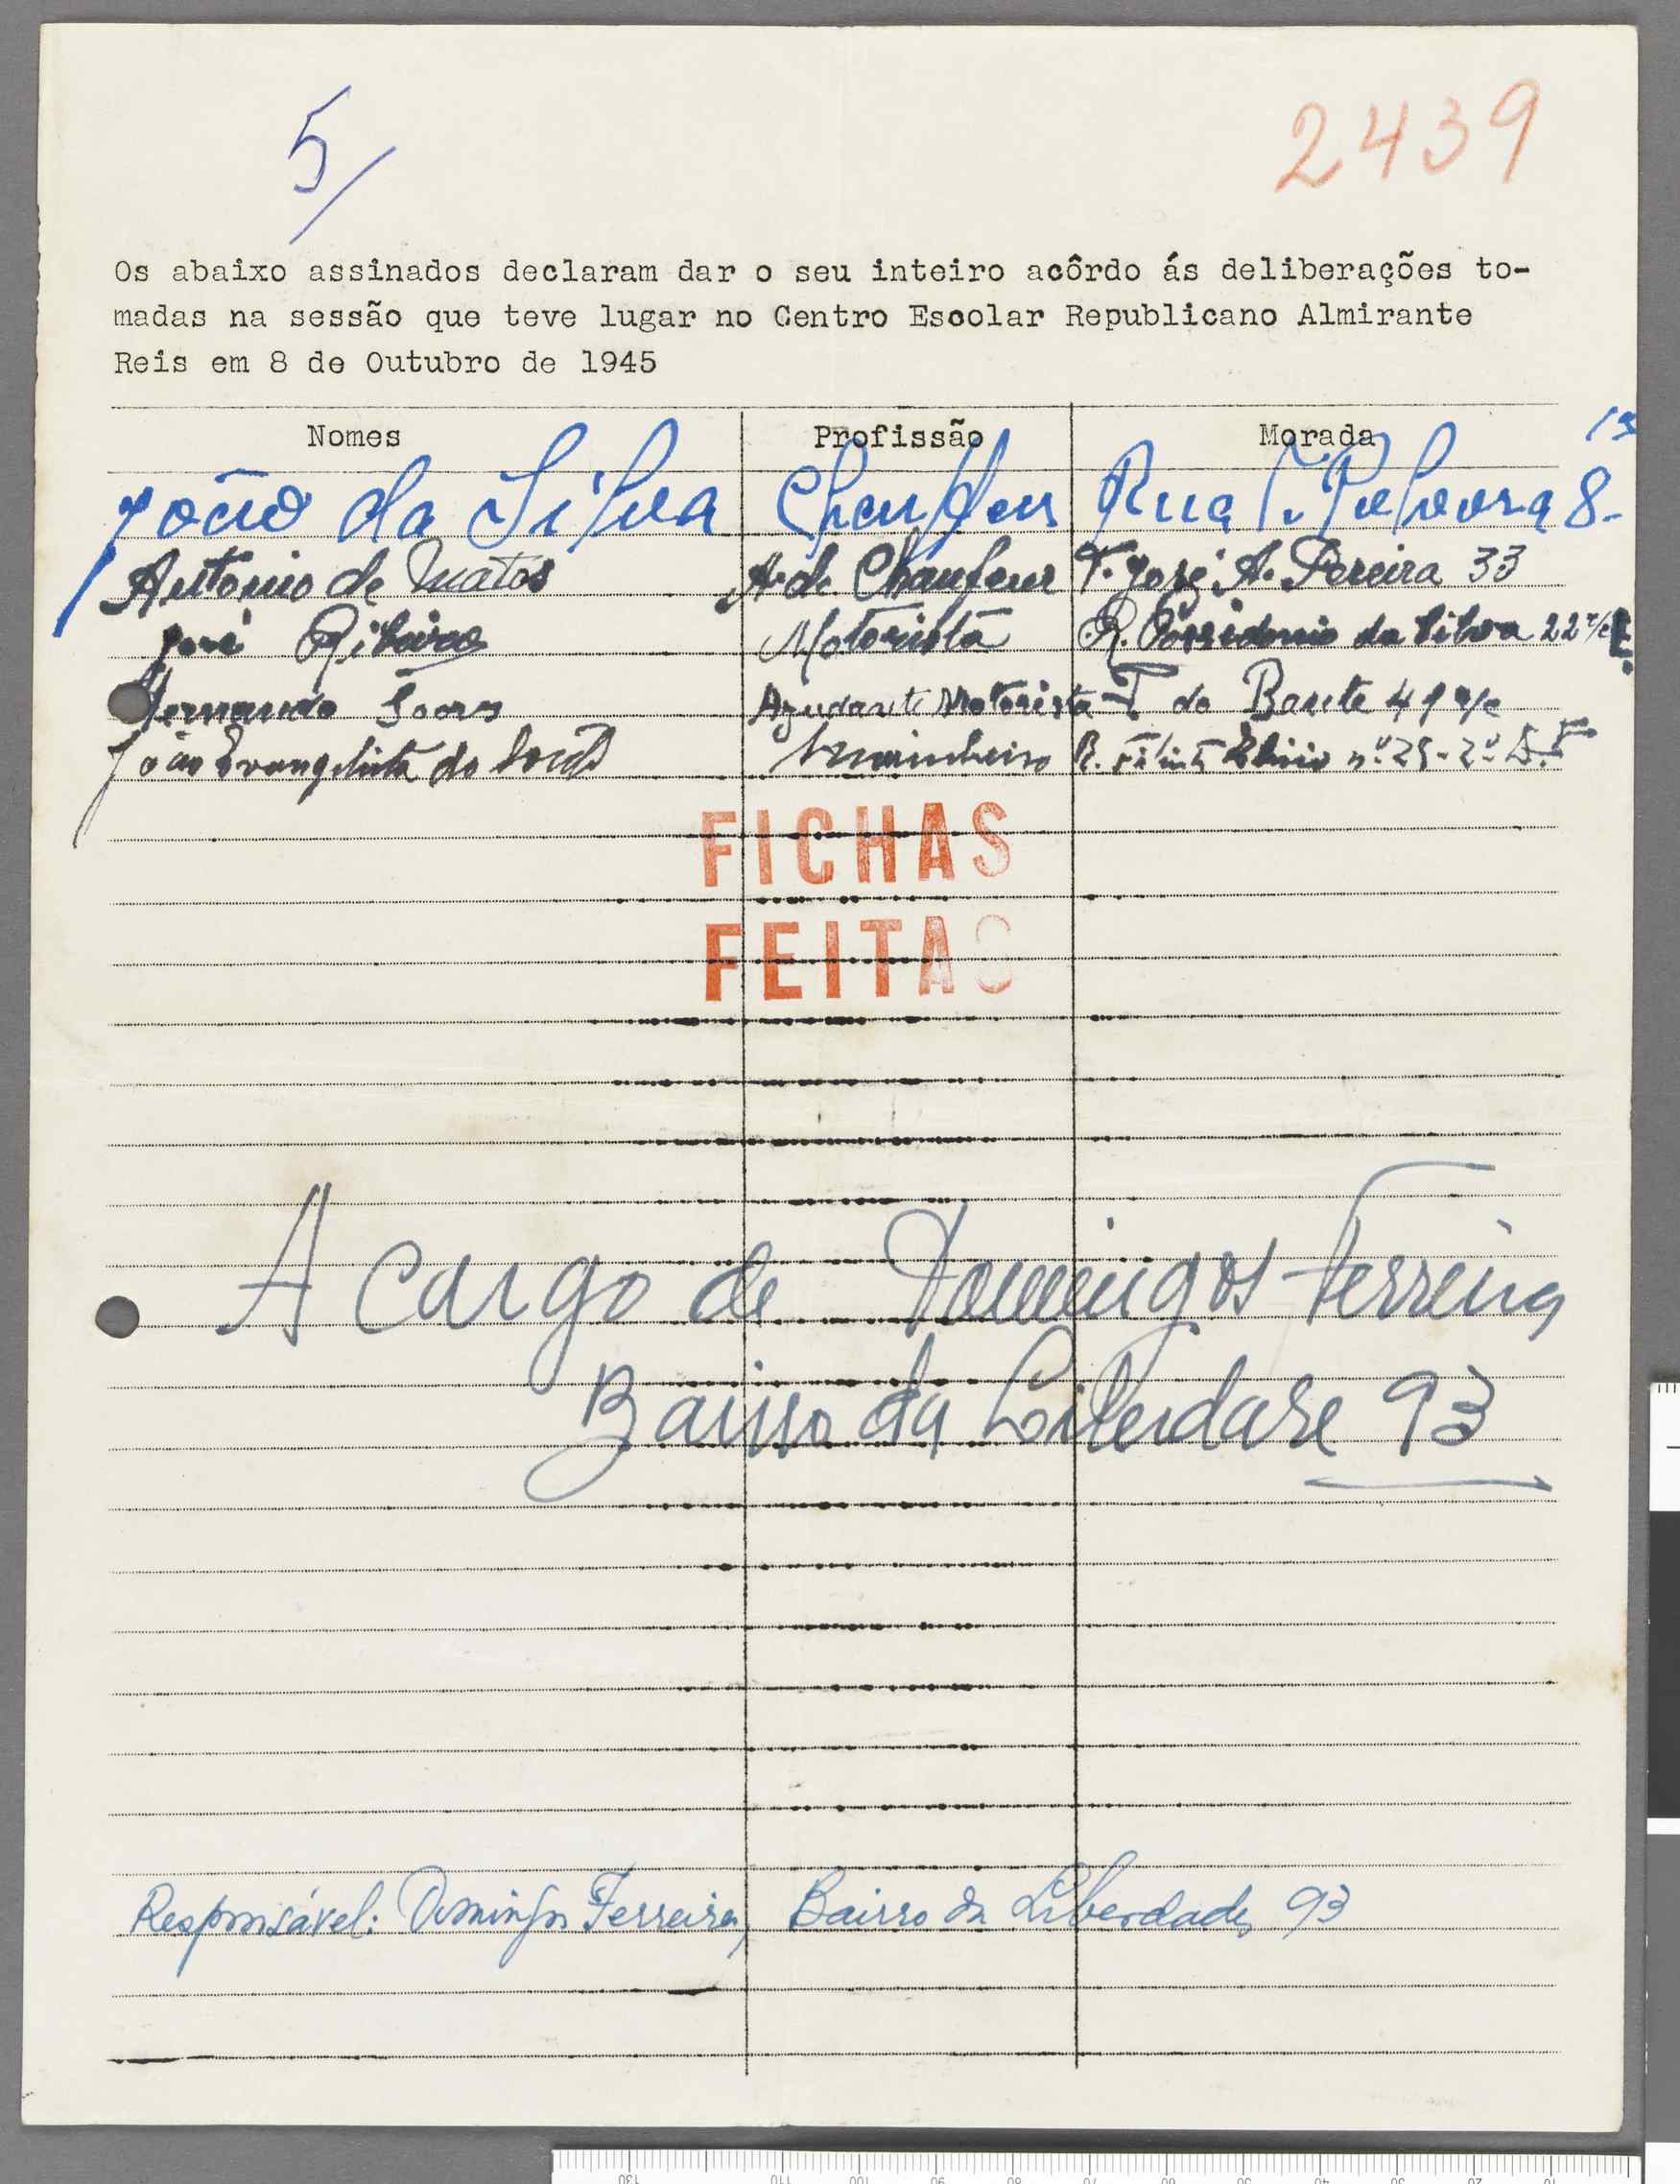 5/
2439
Os abaixo assinados declaram dar o seu inteiro acôrdo ás deliberações to-
madas na sessão que teve lugar no Centro Escolar Republicano Almirante
Reis em 8 de Outubro de 1945
Nomes Profissão Morada
João da Silva Chaufeur Rua T. Polvora 8-
Antonio de Matos A. de Chaufeur T. José A. Pereira 33
José Ribeiro Motorista R. Possidonio da Silva 22 r/c E.
Fernando Soares Ajudante Motorista T do Baute 41 r/c
João Evangelista do Marinheiro R. Filinto Elisio nº 25-2º D.to
FICHAS
FEITAS
A cargo de Domingos Ferreira
Bairro da Liberdade 93
Responsável: Domingos Ferreira, Bairro da Liberdade, 93